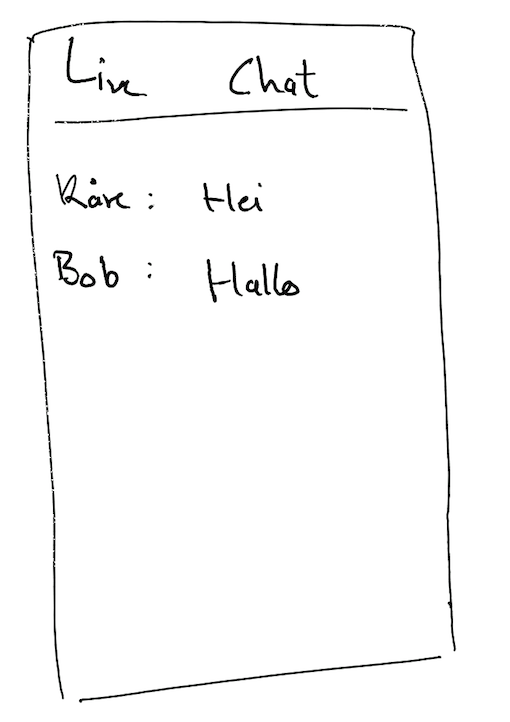 Live Chat
Kåre : Hei
Bob : Hallo